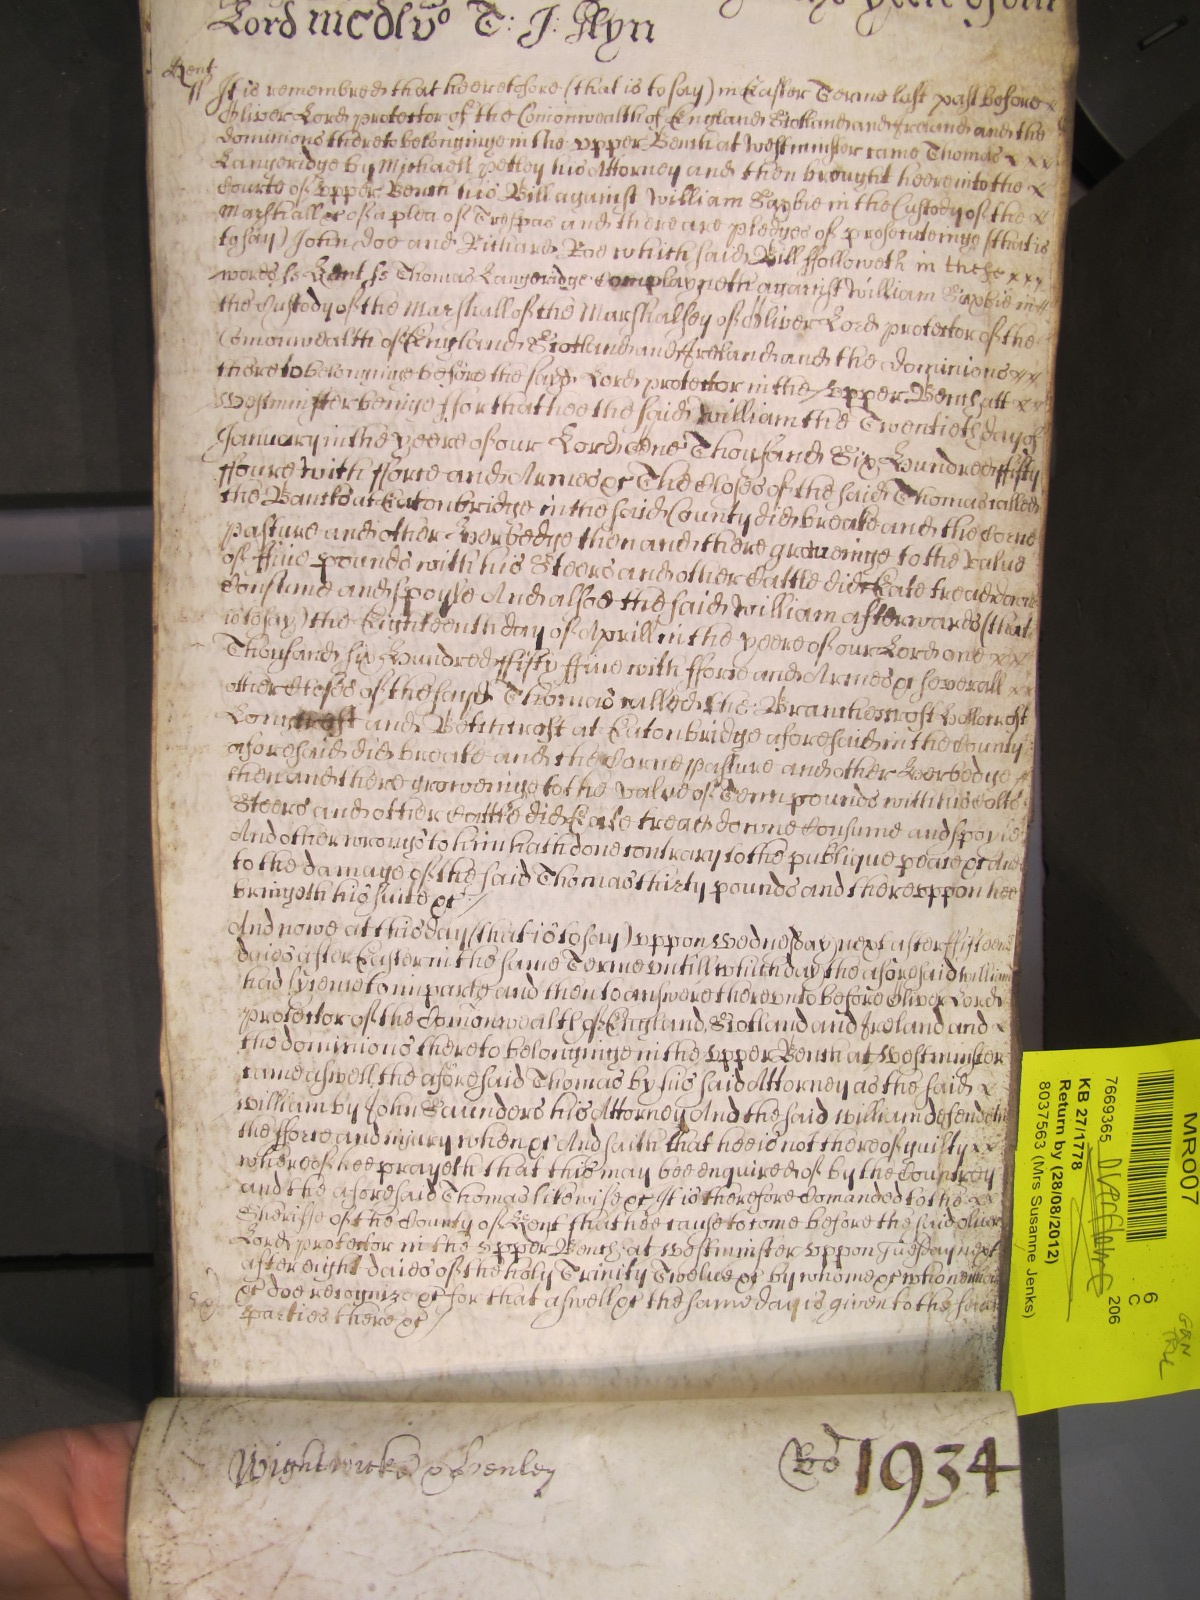 yeere of our
Lord MCDLVo T: J: Glyn
Kent
ss It is remembred that heeretofore (that is to say) in Easter Terme last past before
Oliver Lord protector of the Comonwealth of England Scotland and Ireland and the
dominions thereto belonginge in the upper Bench at Westminster came Thomas
Langeridge by Michaell Petley his Attorney and then brought heere into the
Courte of Upper Bench his Bill against William Saxbie in the Custody of the
Marshall &c of a plea of Trespas and there are pledges of prosecutinge (that is
to say) John Doe and Richard Roe which said Bill ffolloweth in these
words ss Kent ss Thomas Langeridge Complayneth against William Saxbie in
the Custody of the Marshall of the Marshalsey of Oliver Lord protector of the
Comonwealth of England Scotland and Ireland and the dominions
thereto belonginge before the said Lord protector in the Upper Bench att
Westminster beinge ffor that hee the said William the Twentieth day of
January in the yeere of our Lord One Thousand Six Hundred ffifty
ffoure with fforce and Armes &c The Closes of the said Thomas called
the at Eatonbridge in the said County did breake and the Corne
pasture and other Herbedge then and there groweinge to the value
of ffive pounds with his Steers and other Cattle did Eate tread downe
Consume and spoyle And alsoe the said William afterwards (that
is to say) the Eighteenth day of Aprill in the yeere of our Lord one
Thousand six Hundred ffifty ffive with fforce and Armes &c severall
other Closes of the said Thomas called the
and at Eatonbridge aforesaid in the County
aforesaid did breake and the Corne pasture and other Heerbedge
then and there groweinge to the value of Tenn pounds with his Colts
Steers and other Cattle did Eate tread downe Consume and spoyle
And other wrongs to him hath done contrary to the publique peace &c And
to the damage of the said Thomas thirty pounds and thereuppon hee
bringeth his suite &c
And nowe at this day (that is to say) uppon Wednesday next after ffifteene
daies after Easter in the same Terme untill which day the aforesaid William
had lycence to imparle and then to answere thereunto before Oliver Lord
protector of the Comonwealth of England, Scotland and Ireland and
the dominions thereto belonginge in the Upper Bench at Westminster
came aswell the aforesaid Thomas by his said Attorney as the said
William by John Saunders his Attorney And the said William defendeth
the fforce and iniury when &c And saith that hee is not thereof guilty
whereof hee prayeth that this may bee enquired of by the Countrey
and the aforesaid Thomas likewise &c It is therefore Comanded to the
Sheriffe of the County of Kent that hee cause to come before the said Oliver
Lord protector in the Upper Bench at Westminster uppon Tuesday next
after eight daies of the holy Trinity Twelve &c by whome &c who
&c doe recognize &c for that aswell &c the same day is given to the said
parties there &c
Wightwicke & Henley
Ro 1934
MR007
6
C
7669365
206
KB 27/1778
Return by (28/08/2012)
8037563 (Mrs Susanne Jenks)